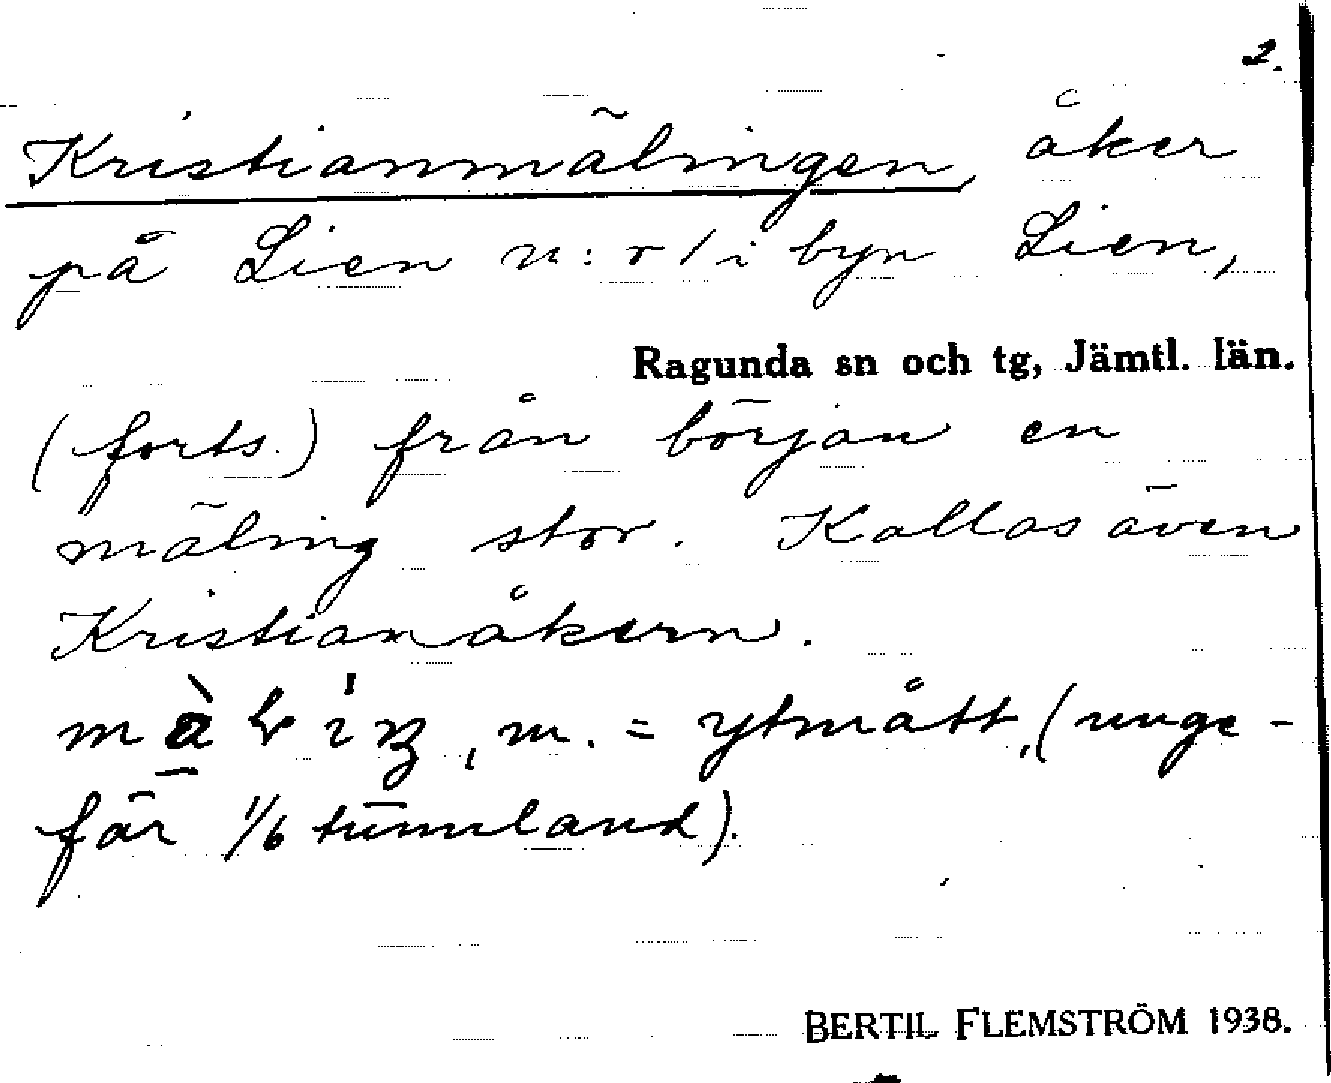 2.
Kristianmälingen, åker
på Lien n:r 1 i byn Lien,
Ragunda sn och tg, Jämtl. län.
(forts.) från början en
mäling stor. Kallas även
Kristianåkern.
, m. = ytmått, (unge-
fär 1/6 tunnland).
BERTIL FLEMSTRÖM 1938.